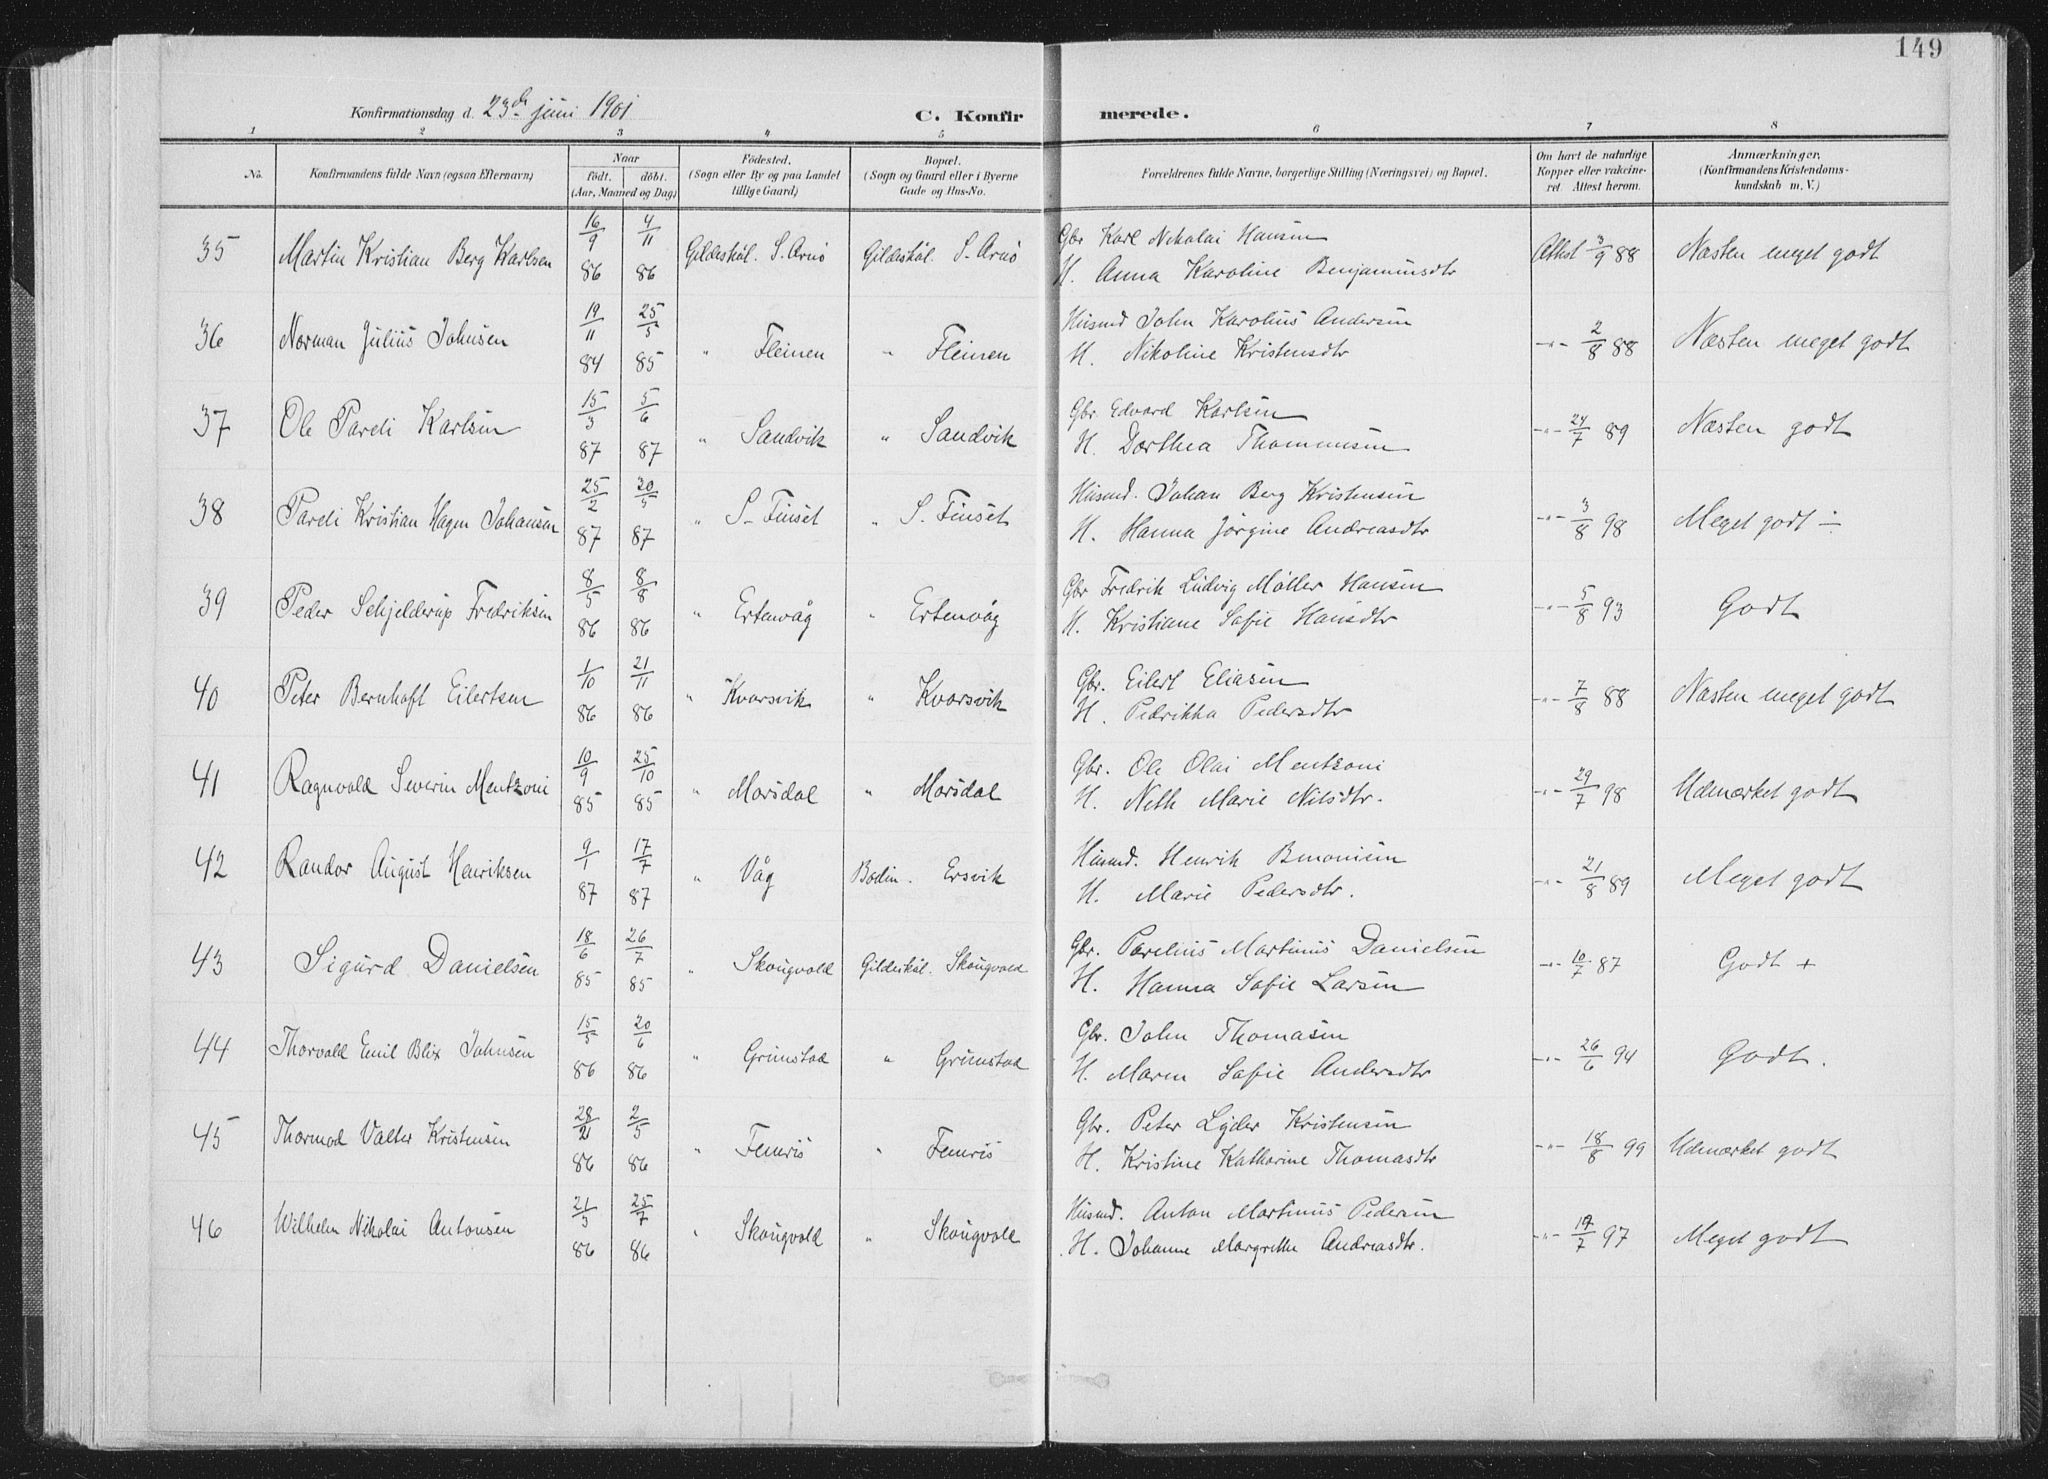 149
Konfirmationsdag d. 23de juni 1901 C. Konfirmerede.
1 2 3 4 5 6 7 8
No. Konfirmandens fulde Navn (ogsaa Efternavn) Naar födt. döbt. (Aar, Maaned og Dag) Födested. (Sogn eller By og paa Landet tillige Gaard) Bopæl. (Sogn og Gaard eller i Byerne Gade og Hus-No. Forældrenes fulde Navne, borgerlige Stilling (Næringsvei) og Bopæl. Om havt de naturlige Kopper eller vakcineret. Attest herom. Anmærkninger. (Konfirmandens Kristendomskundskab m. V.)
35 Martin Kristian Berg Karlsen 16/9 86 4/11 86 Gildeskål. S. Arnö Gildeskål. S. Arnö Gbr Karl Nikolai Hansen Attest 3/9 88 Næsten meget godt
H. Anna Karoline Benjaminsdtr
36 Norman Julius Johnsen 19/11 84 25/5 85 " Fleinen " Fleinen Husmd John Karolius Andersen -"- 2/8 88 Næsten meget godt
H. Nikoline Kristensdtr
37 Ole Pareli Karlsen 15/3 87 5/6 87 " Sandvik " Sandvik Gbr Edvard Karlsen -"- 24/7 89 Næsten godt
H. Dorthea Thommesen
38 Pareli Kristian Hagen Johansen 25/2 87 30/5 87 " S. Finset " S. Finset Husmd. Johan Berg Kristensen -"- 3/8 98 Meget godt ÷
H. Hanna Jörgine Andreasdtr
39 Peder Schjelderup Fredriksen 8/5 86 8/8 86 " Ertenvåg " Ertenvåg Gbr Fredrik Ludvig Möller Hansen -"- 5/8 93 Godt
H. Kristiane Sofie Hansdtr
40 Peter Bernhoft Eilertsen 1/10 86 21/11 86 " Kvarsvik " Kvarsvik Gbr. Eilert Eliasen -"- 7/8 88 Næsten meget godt
H. Pedrikka Pedersdtr
41 Ragnvald Severin Mentzoni 10/9 85 25/10 85 " Morsdal " Morsdal Gbr. Ole Olai Mentzoni -"- 29/7 98 Udmærket godt
H. Neth Marie Nilsdtr.
42 Randor August Henriksen 9/1 87 17/7 87 " Våg Bodin. Ersvik Husmd. Henrik Benonisen -"- 21/8 89 Meget godt
H. Marie Pedersdtr.
43 Sigurd Danielsen 18/6 85 26/7 85 " Skougvold Gildeskål. Skougvold Gbr. Parelius Martinus Danielsen -"- 10/7 87 Godt +
H. Hanna Sofie Larsen
44 Thorvald Emil Blix Johnsen 15/5 86 20/6 86 " Grimstad " Grimstad Gbr. John Thomasen -"- 26/6 94 Godt.
H. Maren Sofie Andersdtr
45 Thormod Valter Kristensen 28/2 86 2/5 86 " Femris " Femris Gbr. Peter Lyder Kristensen -"- 18/8 99 Udmærket godt
H. Kristine Katharine Thomasdtr
46 Wilhelm Nikolai Antonsen 21/5 86 25/7 86 " Skougvold " Skougvold Husmd. Anton Martinus Pedersen -"- 19/7 97 Meget godt
H. Johanne Margrethe Andreasdtr.